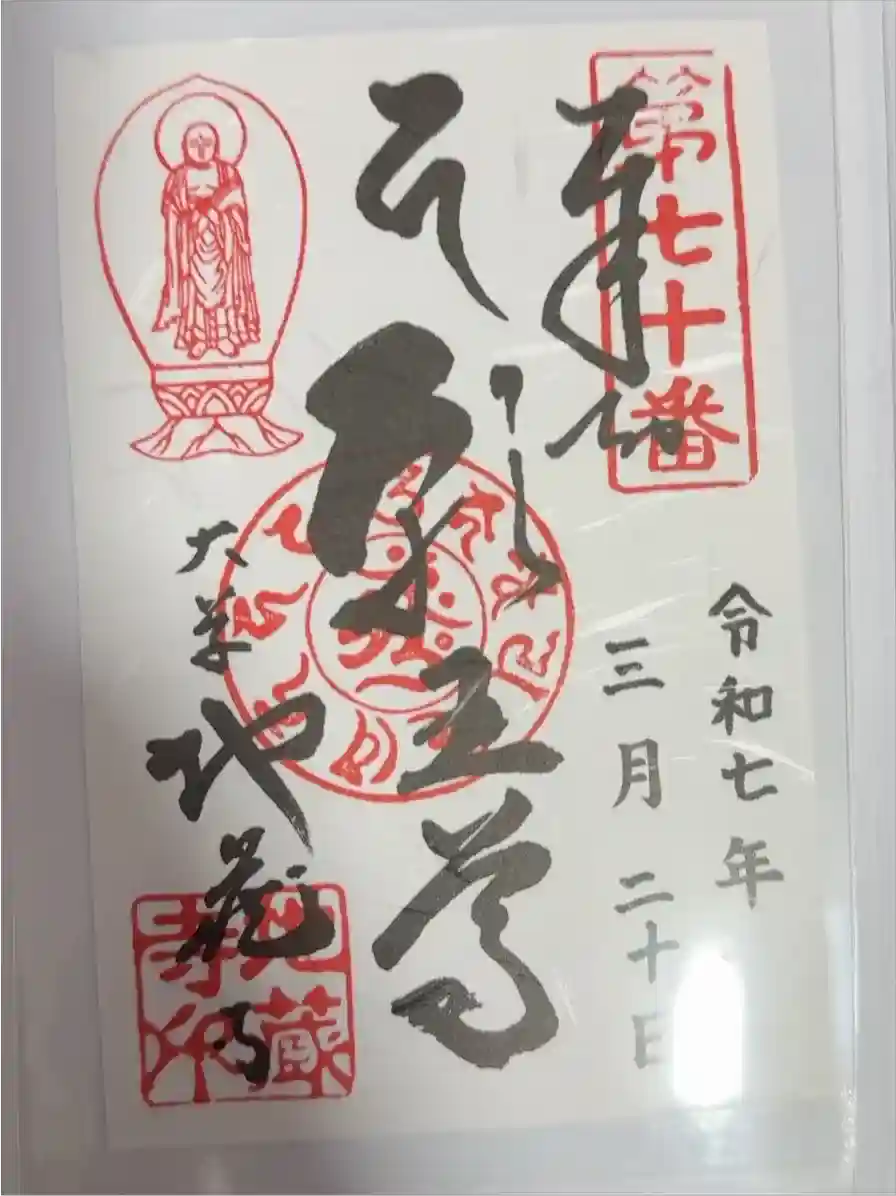 第七十番
奉拝
令和七年
三月二十日
尊
大草
地蔵寺
地蔵寺印